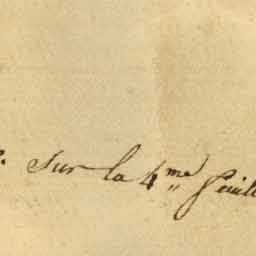 . Sur la 4.me feuill